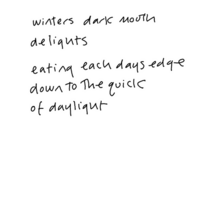 winters dark mouth
delights
eating each days edge
down to the quick
of daylight